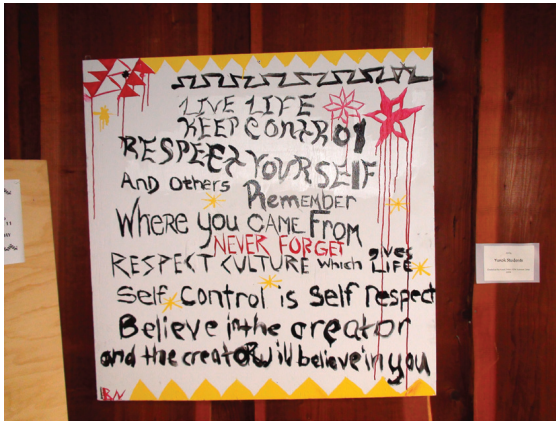 LIVE LIFE
KEEP CONTROL
RESPECT YOURSELF
And Others Remember
Where you CAME From
NEVER FORGET
RESPECT CULTURE which gives LIFE
Self Control is Self Respect
Believe in the creator
and the creator will believe in you
BN